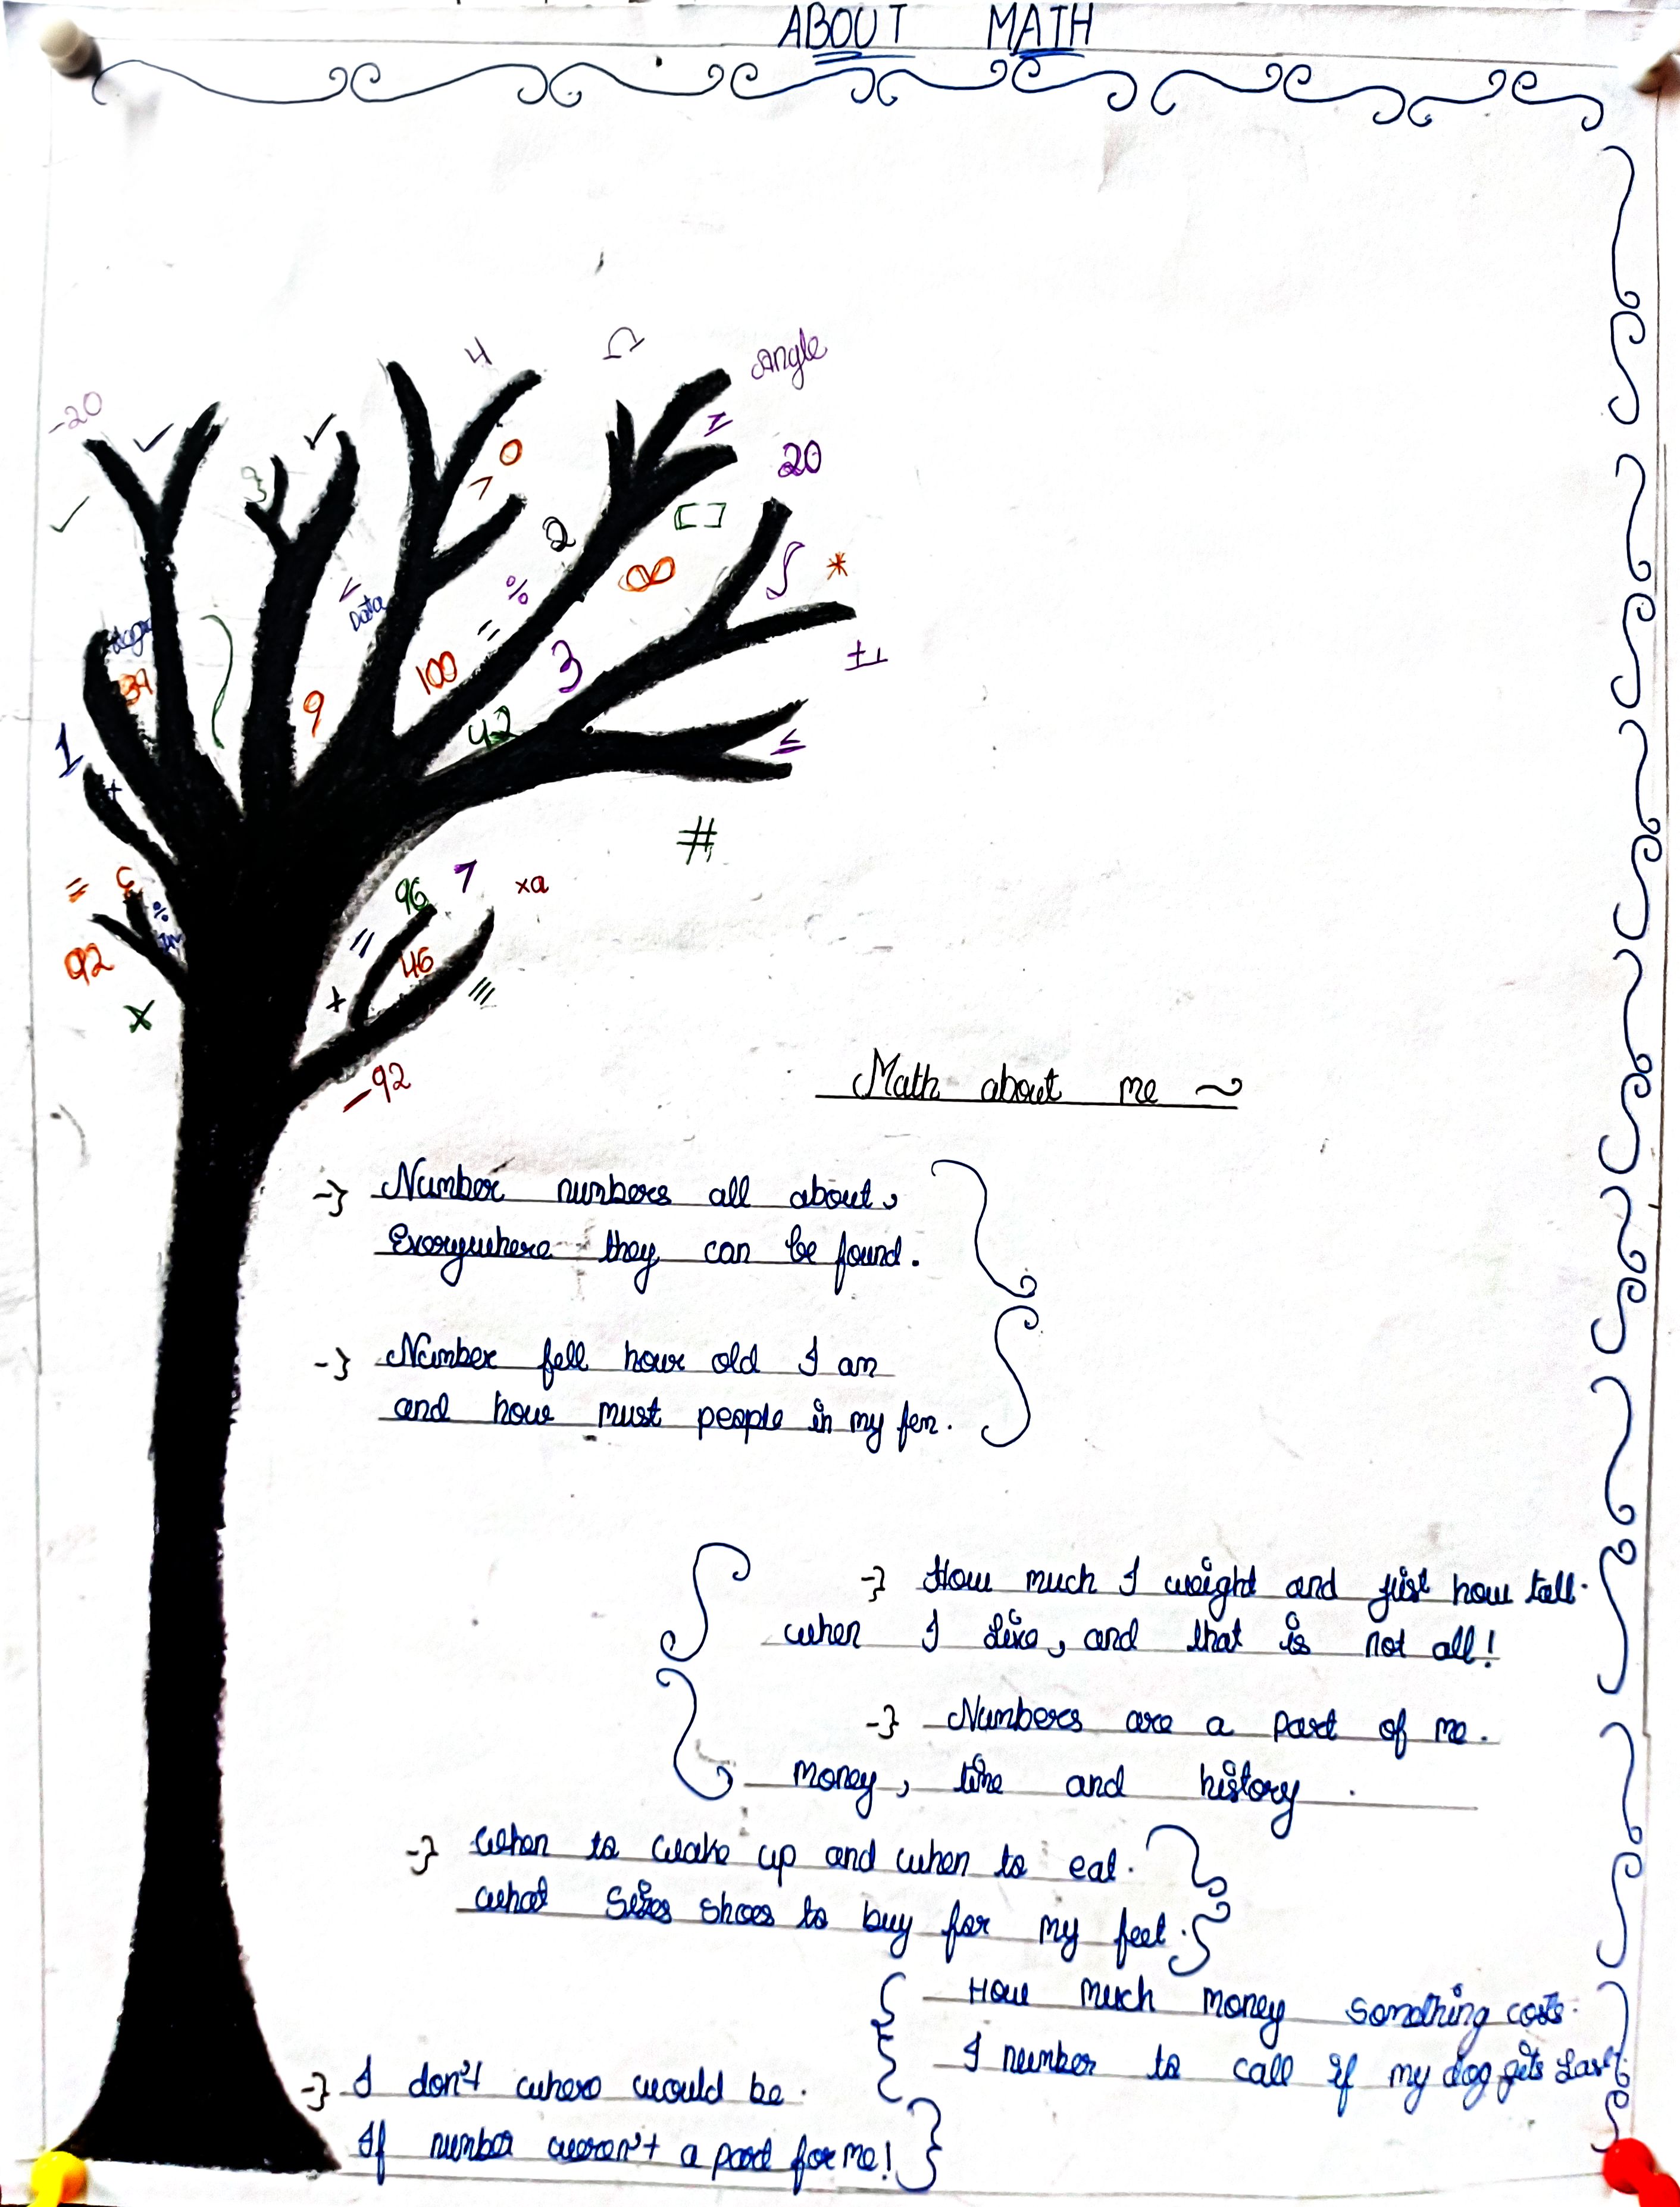 ABOUT MATH
4
Ω
angle
-20
✓
✓
✓
3
0
>
20
2
[ ]
∞
∫
*
%
<
Data
=
100
3
±
39
9
42
1
+
≤
#
96
7
xa
=
%
92
=
46
+
x
-92
Math about me ~
Number numbers all about,
Everywhere they can be found.
Number fell how old I am
and how must people in my fem.
How much I weight and just how tall.
when I live, and that is not all!
Numbers are a part of me.
money, time and history
when to wake up and when to eat.
what sizes shoes to buy for my feet.
How much money something costs.
I number to call if my dog gets Lost.
I don't where would be.
If number weren't a part for me!